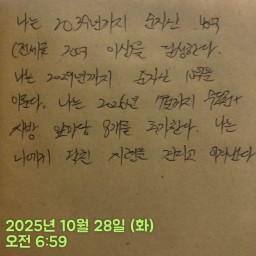 나는 2039년까지 순자산 50억
(전세포함 70억 이상)을 달성한다.
나는 2029년까지 순자산 10억을
이룬다. 나는 2026년 까지 수도권+
지방 앞마당 8개를 추가한다. 나는
나에게 닥친 시련을 견디고 이겨낸다
2025년 10월 28일 (화)
오전 6:59